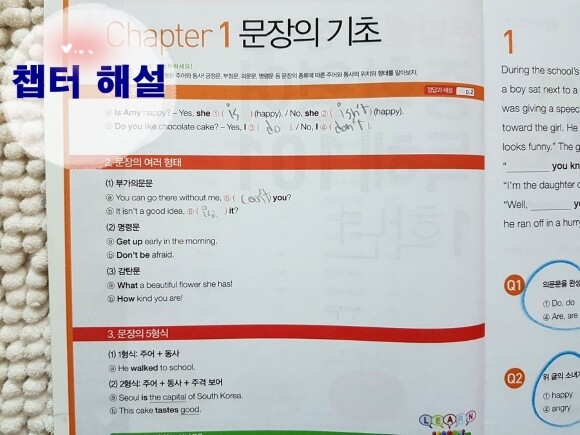 Chapter 1 문장의 기초
챕터 해설
주어와 동사! 긍정문, 부정문, 의문문, 명령문 등 문장의 종류에 따른 주어와 동사의 위치와 형태를 알아보자.
정답과 해설 p.2
ⓐ Is Amy happy? – Yes, she ①( is )(happy). / No, she ②( isn't )(happy).
ⓑ Do you like chocolate cake? – Yes, I ③( do ). / No, I ④( don't ).
2. 문장의 여러 형태
(1) 부가의문문
ⓐ You can go there without me, ⑤( can't you?
ⓑ It isn't a good idea, ⑥( is )it?
(2) 명령문
ⓐ Get up early in the morning.
ⓑ Don't be afraid.
(3) 감탄문
ⓐ What a beautiful flower she has!
ⓑ How kind you are!
3. 문장의 5형식
(1) 1형식: 주어 + 동사
ⓐ He walked to school.
(2) 2형식: 주어 + 동사 + 주격 보어
ⓐ Seoul is the capital of South Korea.
ⓑ This cake tastes good.
LEARN
1
During the school's
a boy sat next to a
was giving a speech
toward the girl. He
looks funny." The g
"______ you kn
"I'm the daughter o
"Well, ______ y
he ran off in a hurry
Q1 의문문을 완성
① Do, do
④ Are, are
Q2 위 글의 소녀
① happy
④ angry